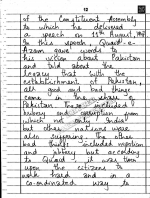 12
of the Constituent Assembly
to which he delivered
a speech on 11th August, 1947.
In this speech Quaid-e-
Azam gave words to
his vision about Pakistan
and told about the
legacy that with the
establishment of Pakistan
all good and bad things
come in the share of
Pakistan. These included
bribery and corruption from
which not only India
but other nations were
also suffering. The other
bad things included nepotism
and jobbery but according
to Quaid, it was upon
upon the citizens to
work hard and in a
co-ordinated way to